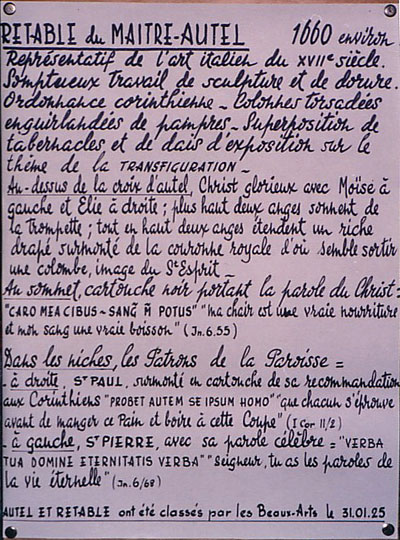 RETABLE du MAITRE-AUTEL 1660 environ
Représentatif de l'art italien du XVIIe siècle.
Somptueux travail de sculpture et de dorure.
Ordonnance corinthienne _ Colonnes torsadées
enguirlandées de pampres _ Superposition de
tabernacles et de dais d'exposition sur le
thème de la TRANSFIGURATION _
Au-dessus de la croix d'autel, Christ glorieux avec Moïse à
gauche et Elie à droite ; plus haut deux anges sonnent de
la Trompette ; tout en haut deux anges étendent un riche
drapé surmonté de la couronne royale d'où semble sortir
une colombe, image du St Esprit _
Au sommet, cartouche noir portant la parole du Christ =
"CARO MEA CIBUS ~ SANG̃ M̃ POTUS" "ma chair est une vraie nourriture
et mon sang une vraie boisson" (Jn. 6.55)
Dans les niches, les Patrons de la Paroisse =
_ à droite, ST PAUL, surmonté en cartouche de sa recommandation
aux Corinthiens "PROBET AUTEM SE IPSUM HOMO" "que chacun s'éprouve
avant de manger ce Pain et boire à cette Coupe" (I Cor 11/2)
_ à gauche, ST PIERRE, avec sa parole célèbre = "VERBA
TUA DOMINE ETERNITATIS VERBA" "Seigneur, tu as les paroles de
la vie éternelle" (Jn. 6/68)
AUTEL ET RETABLE ont été classés par les Beaux-Arts le 31.01.25